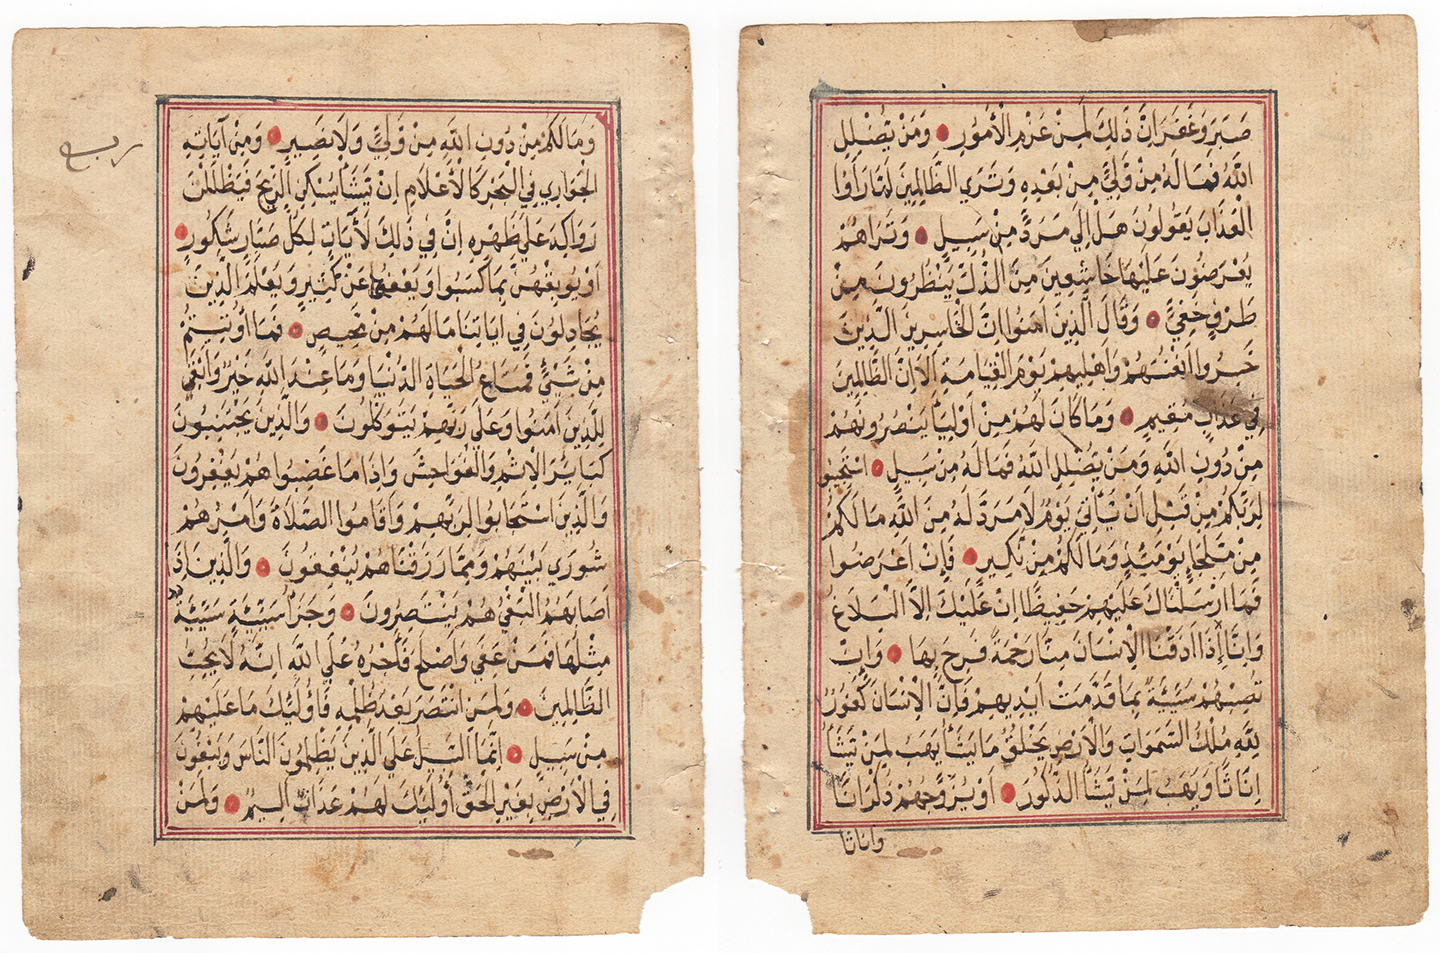 ربع
وَمَا لَكُمْ مِنْ دُونِ اللَّهِ مِنْ وَلِيٍّ وَلَا نَصِيرٍ وَمِنْ آيَاتِهِ
الْجَوَارِي فِي الْبَحْرِ كَالْأَعْلَامِ اِنْ يَشَأْ يُسْكِنِ الرِّيحَ فَيَظْلَلْنَ
رَوَاكِدَ عَلَى ظَهْرِهِ اِنَّ فِي ذَلِكَ لَآيَاتٍ لِكُلِّ صَبَّارٍ شَكُورٍ
اَوْ يُوبِقْهُنَّ بِمَا كَسَبُوا وَيَعْفُ عَنْ كَثِيرٍ وَيَعْلَمَ الَّذِينَ
يُجَادِلُونَ فِي اٰيَاتِنَا مَا لَهُمْ مِنْ مَحِيصٍ فَمَا اُوتِيتُمْ
مِنْ شَيْئٍ فَمَتَاعُ الْحَيَاةِ الدُّنْيَا وَمَا عِنْدَ اللَّهِ خَيْرٌ وَاَبْقَى
لِلَّذِينَ اٰمَنُوا وَعَلَى رَبِّهِمْ يَتَوَكَّلُونَ وَالَّذِينَ يَجْتَنِبُونَ
كَبَائِرَ الْاِثْمِ وَالْفَوَاحِشَ وَاِذَا مَا غَضِبُوا هُمْ يَغْفِرُونَ
وَالَّذِينَ اسْتَجَابُوا لِرَبِّهِمْ وَاَقَامُوا الصَّلَاةَ وَاَمْرُهُمْ
شُورَى بَيْنَهُمْ وَمِمَّا رَزَقْنَاهُمْ يُنْفِقُونَ وَالَّذِينَ اِذَا
اَصَابَهُمُ الْبَغْيُ هُمْ يَنْتَصِرُونَ وَجَزَاُ سَيِّئَةٍ سَيِّئَةٌ
مِثْلُهَا فَمَنْ عَفَى وَاَصْلَحَ فَاَجْرُهُ عَلَى اللَّهِ اِنَّهُ لَا يُحِبُّ
الظَّالِمِينَ وَلَمَنِ انْتَصَرَ بَعْدَ ظُلْمِهِ فَاُولَئِكَ مَا عَلَيْهِمْ
مِنْ سَبِيلٍ اِنَّمَا السَّبِيلُ عَلَى الَّذِينَ يَظْلِمُونَ النَّاسَ وَيَبْغُونَ
فِي الْاَرْضِ بِغَيْرِ الْحَقِّ اُولَئِكَ لَهُمْ عَذَابٌ اَلِيمٌ وَلَمَنْ
صَبَرَ وَغَفَرَ اِنَّ ذَلِكَ لَمِنْ عَزْمِ الْاُمُورِ وَمَنْ يُضْلِلِ
اللَّهُ فَمَا لَهُ مِنْ وَلِيٍّ مِنْ بَعْدِهِ وَتَرَى الظَّالِمِينَ لَمَّا رَاَوُا
الْعَذَابَ يَقُولُونَ هَلْ اِلَى مَرَدٍّ مِنْ سَبِيلٍ وَتَرَاهُمْ
يُعْرَضُونَ عَلَيْهَا خَاشِعِينَ مِنَ الذُّلِّ يَنْظُرُونَ مِنْ
طَرْفٍ خَفِيٍّ وَقَالَ الَّذِينَ اٰمَنُوا اِنَّ الْخَاسِرِينَ الَّذِينَ
خَسِرُوا اَنْفُسَهُمْ وَاَهْلِيهِمْ يَوْمَ الْقِيَامَةِ اَلَا اِنَّ الظَّالِمِينَ
فِي عَذَابٍ مُقِيمٍ وَمَا كَانَ لَهُمْ مِنْ اَوْلِيَاَ يَنْصُرُونَهُمْ
مِنْ دُونِ اللَّهِ وَمَنْ يُضْلِلِ اللَّهُ فَمَا لَهُ مِنْ سَبِيلٍ اسْتَجِيبُوا
لِرَبِّكُمْ مِنْ قَبْلِ اَنْ يَأْتِيَ يَوْمٌ لَا مَرَدَّ لَهُ مِنَ اللَّهِ مَا لَكُمْ
مِنْ مَلْجَإٍ يَوْمَئِذٍ وَمَا لَكُمْ مِنْ نَكِيرٍ فَاِنْ اَعْرَضُوا
فَمَا اَرْسَلْنَاكَ عَلَيْهِمْ حَفِيظًا اِنْ عَلَيْكَ اِلَّا الْبَلَاغُ
وَاِنَّا اِذَا اَذَقْنَا الْاِنْسَانَ مِنَّا رَحْمَةً فَرِحَ بِهَا وَاِنْ
تُصِبْهُمْ سَيِّئَةٌ بِمَا قَدَّمَتْ اَيْدِيهِمْ فَاِنَّ الْاِنْسَانَ كَفُورٌ
لِلَّهِ مُلْكُ السَّمَوَاتِ وَالْاَرْضِ يَخْلُقُ مَا يَشَاُ يَهَبُ لِمَنْ يَشَاُ
اِنَاثًا وَيَهَبُ لِمَنْ يَشَاُ الذُّكُورَ اَوْ يُزَوِّجُهُمْ ذُكْرَانًا
وَاِنَاثًا